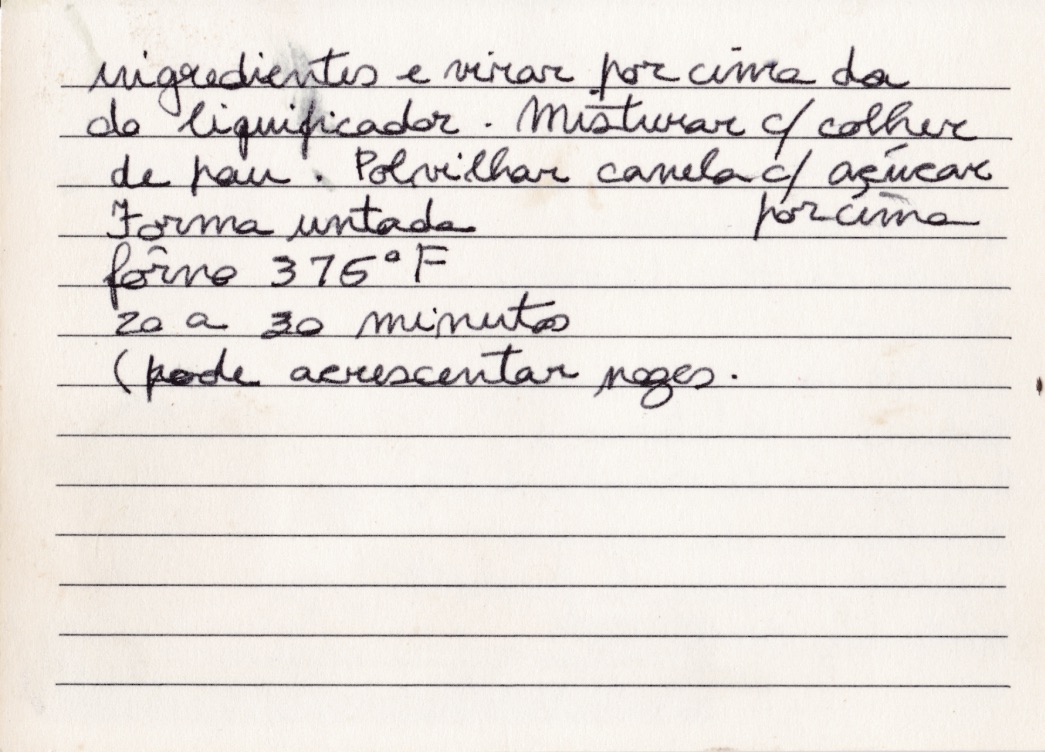 ingredientes e virar por cima da
do liquificador. Misturar c/ colher
de pau. Polvilhar canela c/ açúcar
Forma untada por cima
fôrno 375°F
20 a 30 minutos
(pode acrescentar nozes.